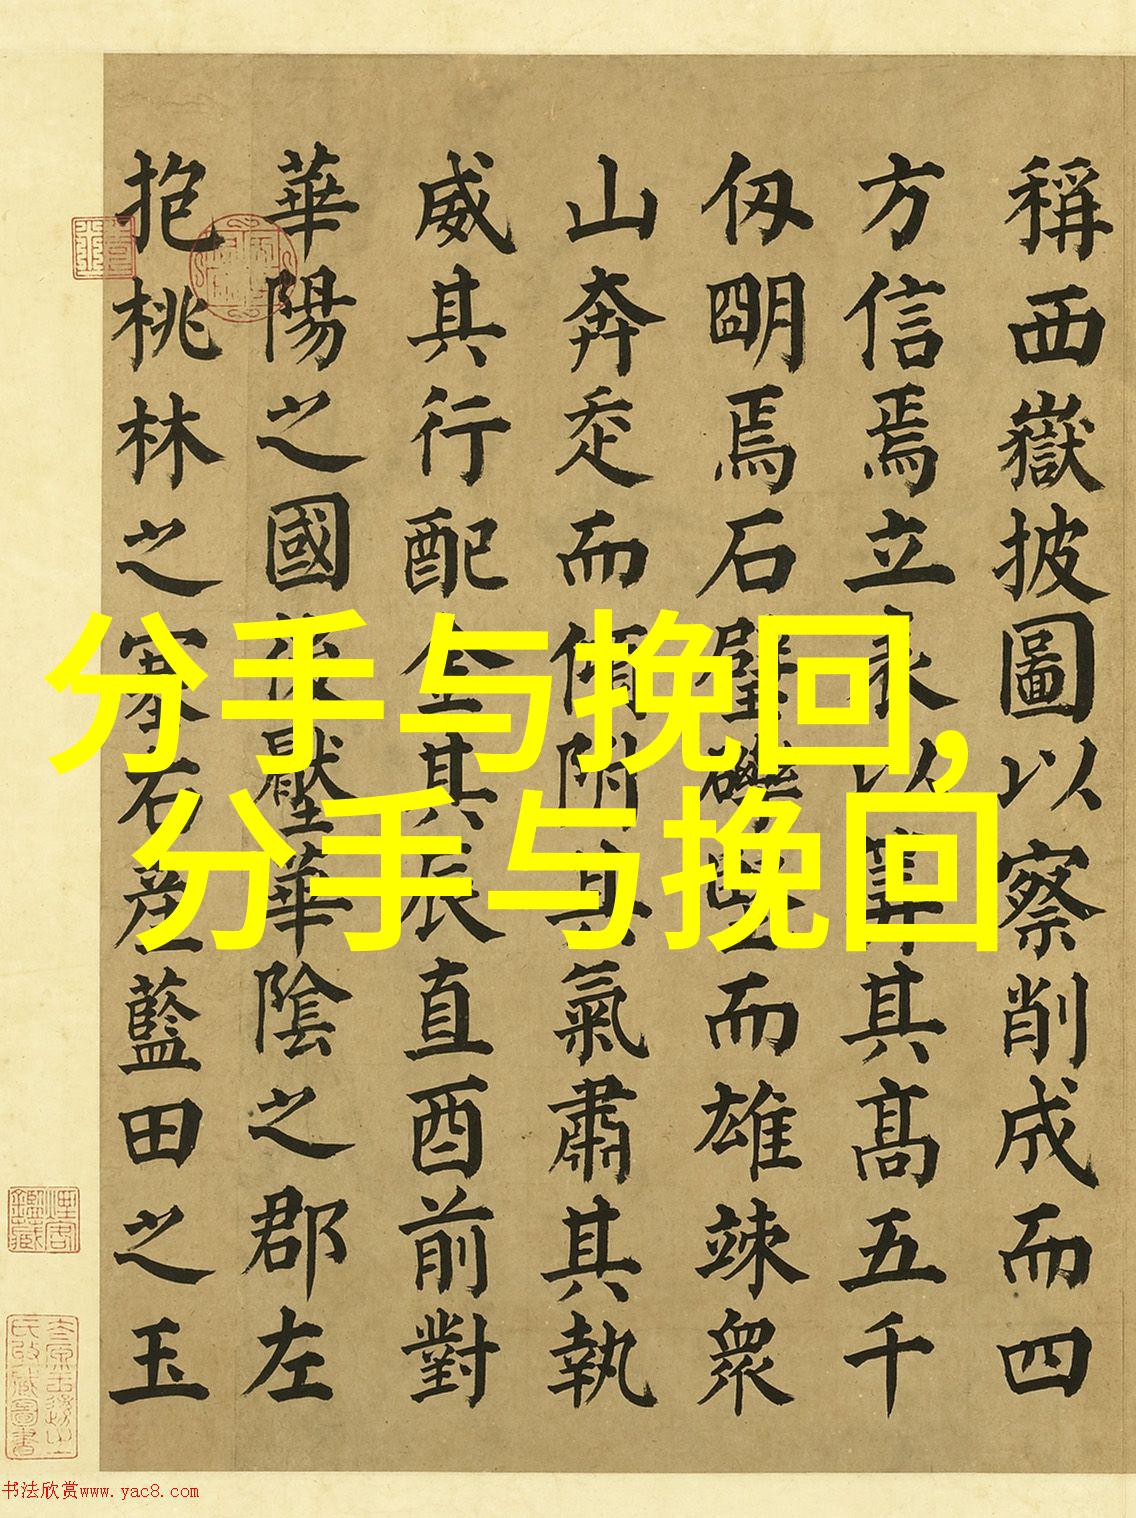 稱西嶽披圖以察削成而四
方信焉立表以算其髙五千
仭朙焉石壁竪而雄竦衆
山奔走而傾附其氣肅其執
威其行配金其辰直酉前對
華陽之國後壓華陰之郡左
抱桃林之塞右產藍田之玉
分手与挽回,
分手与挽回
书法欣赏www.yac8.com